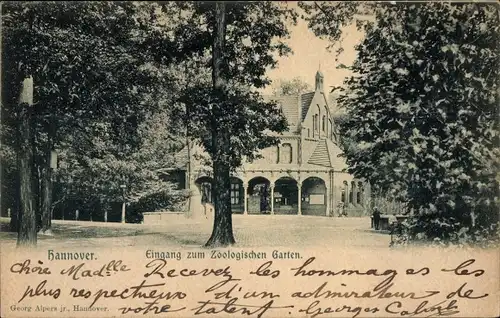 Hannover. Eingang zum Zoologischen Garten.
Chère Madlle Recevez les hommages les
plus respectueux d'un admirateur de
votre talent. Georges
Georg Alpers jr., Hannover.